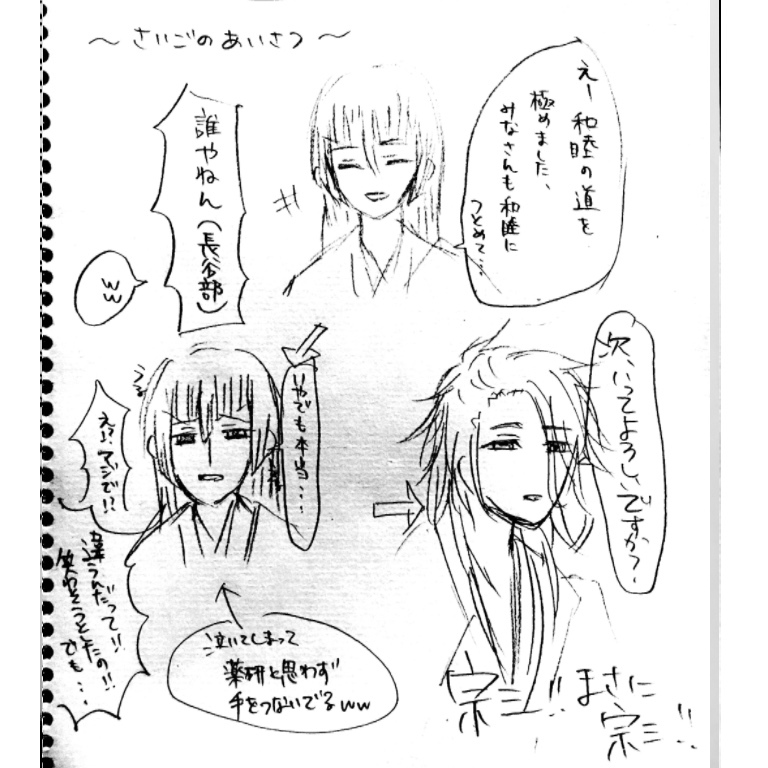 ～さいごのあいさつ～
えー和睦の道を
極めました、
みなさんも和睦に
つとめて…
誰やねん(長谷部)
ww
いやでも本当…
え!?マジで!?
次、いってよろしいですか?
違うんだって!!
笑わそうとしたの!!
でも…
泣いてしまって
薬研と思わず
手をつないでるww
宗三!!まさに
宗三!!